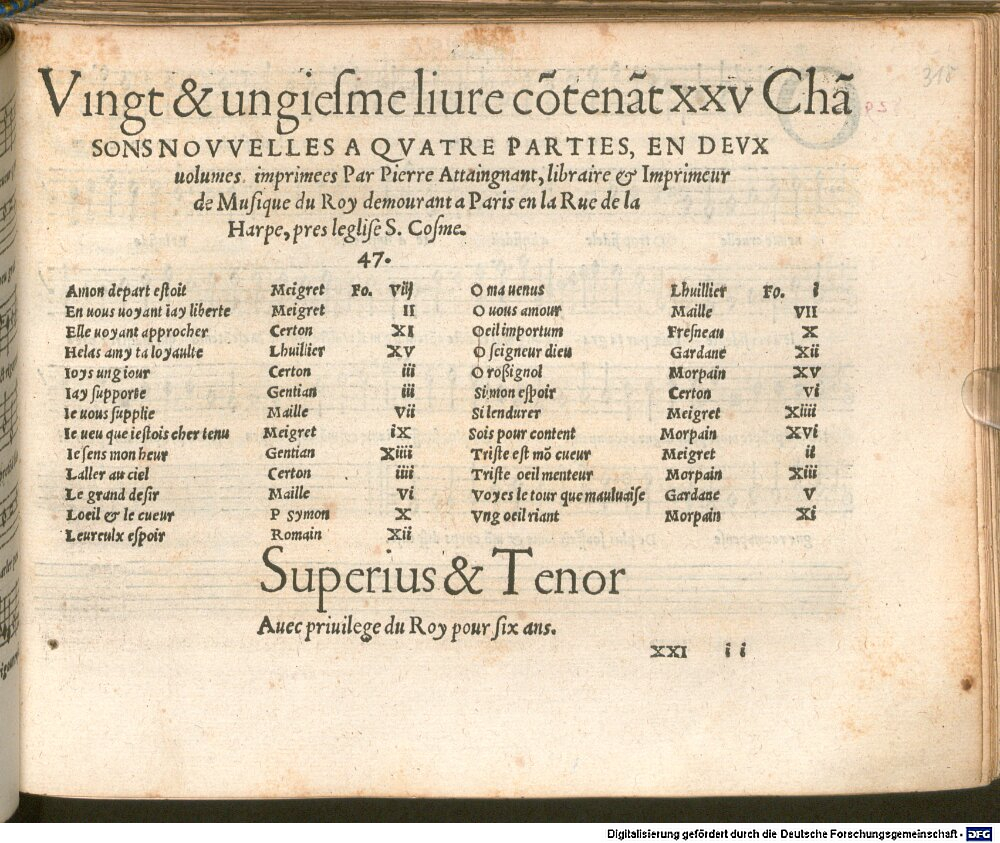 Vingt & ungiesme liure cõtenãt xxv Chã
SONS NOVVELLES A QVATRE PARTIES, EN DEVX
uolumes imprimees Par Pierre Attaingnant, libraire & Imprimeur
de Musique du Roy demourant a Paris en la Rue de la
Harpe, pres leglise S. Cosme.
47.
Amon depart estoit Meigret Fo. Viij
En uous uoyant iay liberte Meigret II
Elle uoyant approcher Certon XI
Helas amy ta loyaulte Lhuillier XV
Ioys ung iour Certon iii
Iay supporte Gentian iii
Ie uous supplie Maille Vii
Ie ueu que iestois cher tenu Meigret iX
Ie sens mon heur Gentian Xiiii
Laller au ciel Certon iiii
Le grand desir Maille Vi
Loeil & le cueur P symon X
Leureulx espoir Romain Xii
O ma uenus Lhuillier Fo. i
O uous amour Maille VII
Oeil importum Fresneau X
O seigneur dieu Gardane Xii
O roßignol Morpain XV
Si mon espoir Certon Vi
Si lendurer Meigret Xiiii
Sois pour content Morpain XVi
Triste est mõ cueur Meigret ii
Triste oeil menteur Morpain Xiii
Voyes le tour que mauluaise Gardane V
Vng oeil riant Morpain Xi
Superius & Tenor
Auec priuilege du Roy pour six ans.
XXI i i
318
Digitalisierung gefördert durch die Deutsche Forschungsgemeinschaft - DFG